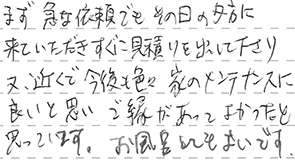 まず 急な依頼でも その日の夕方に
来ていただきすぐに見積りを出して下さり
又、近くで今後も色々 家のメンテナンスに
良いと思い ご縁があって よかったと
思っています。 お風呂とてもよいです。